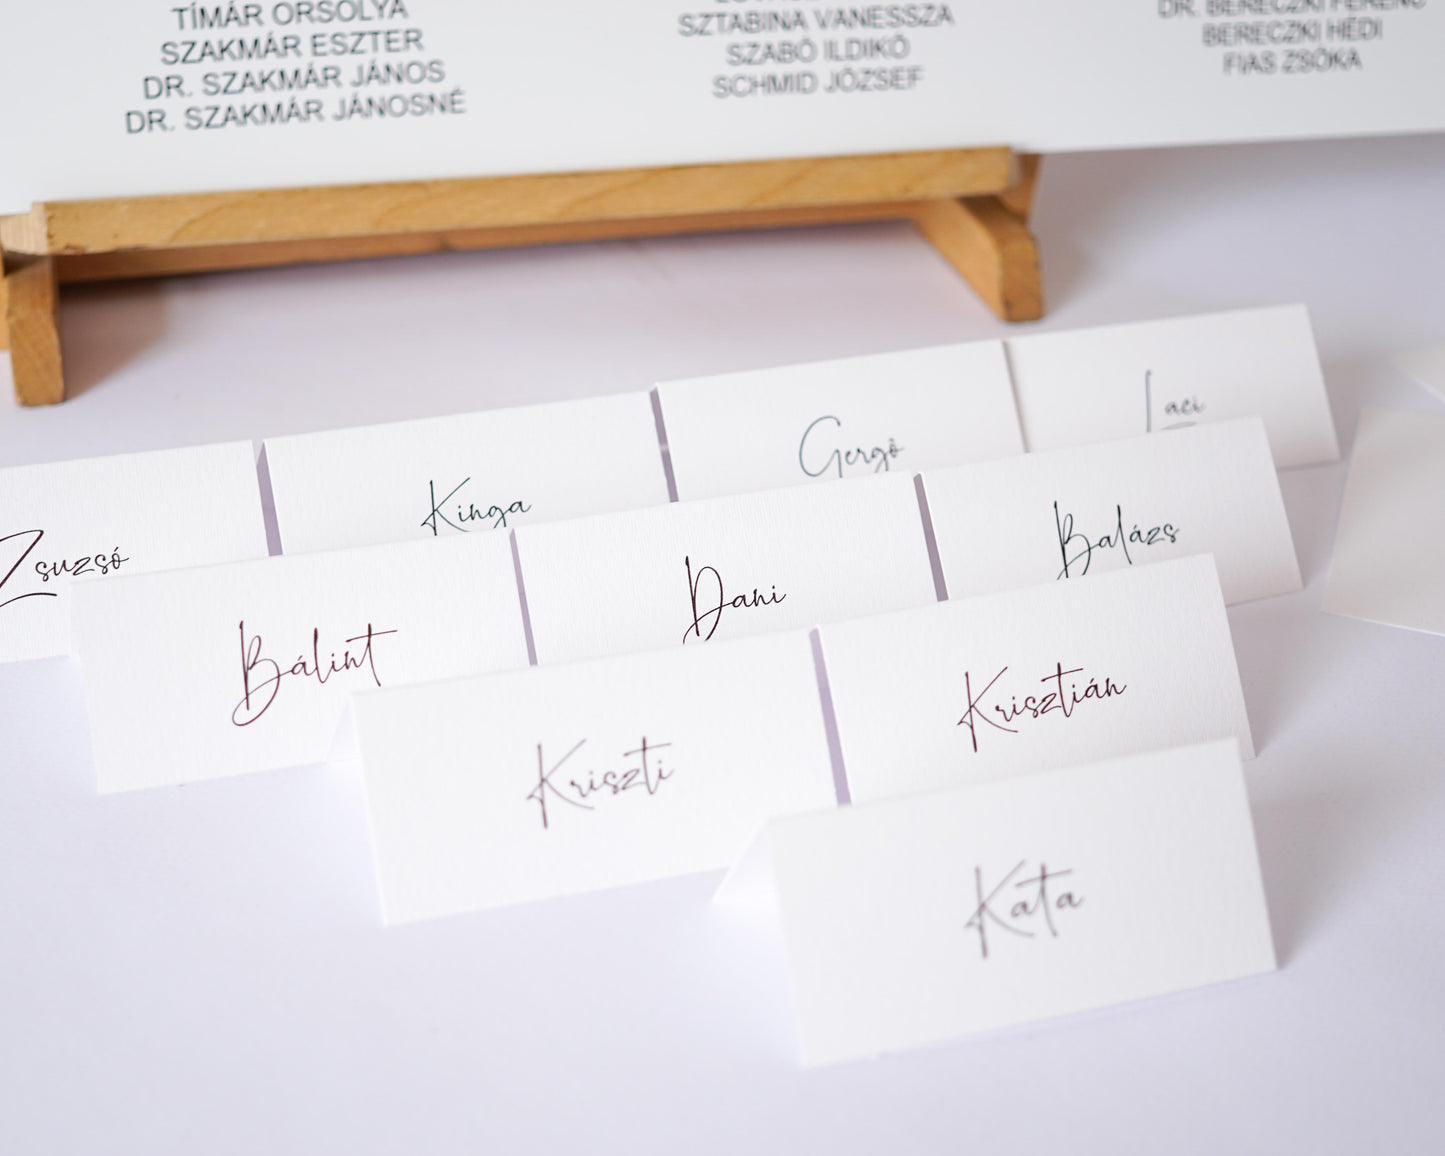 TÍMÁR ORSOLYA
SZAKMÁR ESZTER
DR. SZAKMÁR JÁNOS
DR. SZAKMÁR JÁNOSNÉ
SZTABINA VANESSZA
SZABÓ ILDIKÓ
SCHMID JÓZSEF
DR. BERECZKI FERENC
BERECZKI HÉDI
FIAS ZSÓKA
Zsuzsó
Kinga
Gergő
Laci
Bálint
Dani
Balázs
Kriszti
Krisztián
Kata